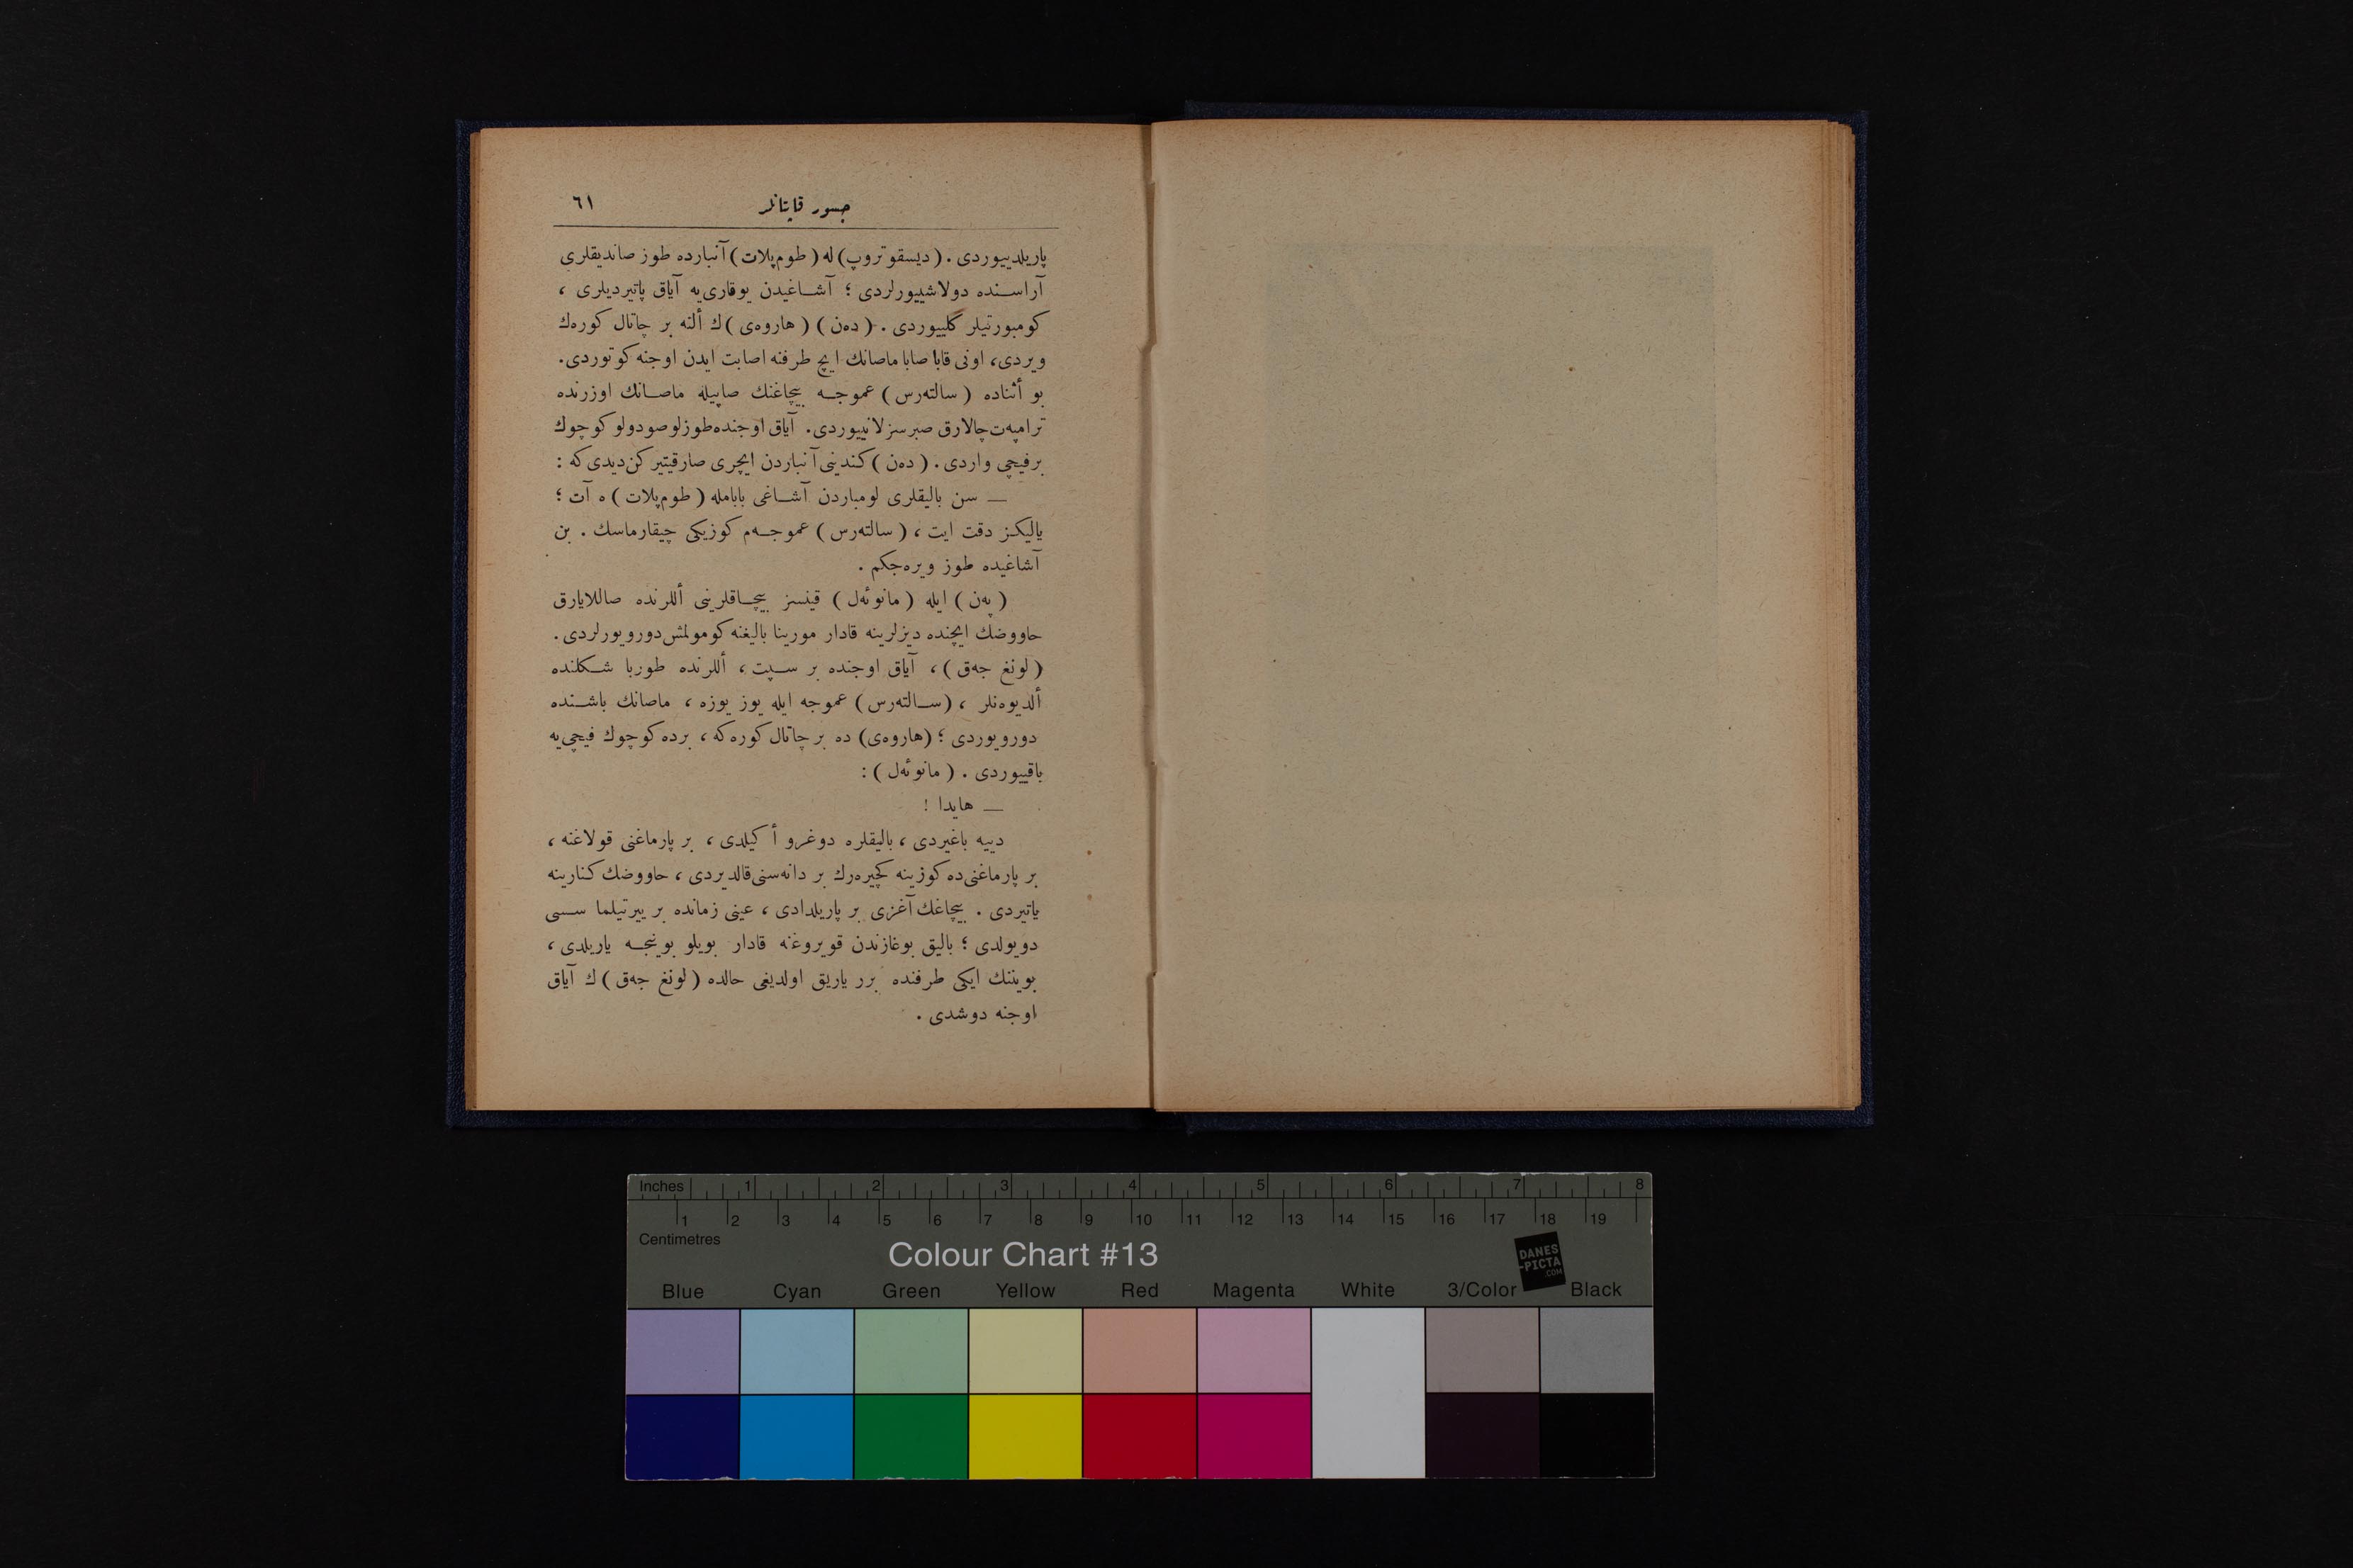 جسور قاپتانلر ٦١
پاریلدییوردی. (دیسقوتروپ) له (طوم پلات) آنبارده طوز صاندیقلری
آراسنده دولاشییورلردی ؛ آشاغیدن یوقاری یه آیاق پاتیردیلری ،
کومبورتیلر گلییوردی. (دەن) (هاروەی) ك ألنه بر چاتال کورەك
ویردی، اونی قابا صابا ماصانك ایچ طرفنه اصابت ایدن اوجنه کوتوردی.
بو أثناده (سالتەرس) عموجه بیچاغنك صاپیله ماصانك اوزرنده
ترامپەت چالارق صبرسزلانییوردی. آیاق اوجنده طوزلو صو دولو کوچوك
بر فیچی واردی. (دەن) کندینی آنباردن ایچری صارقیتیرکن دیدی که :
— سن بالیقلری لومباردن آشاغی بابامله (طوم پلات) ه آت ؛
یالیکز دقت ایت ، (سالتەرس) عموجەم کوزیکی چیقارماسك . بن
آشاغیده طوز ویرەجکم .
(پەن) ایله (مانوئەل) قینسز بیچاقلرینی أللرنده صاللایارق
حاووضك ایچنده دیزلرینه قادار مورینا بالیغنه کومولمش دورویورلردی.
(لونغ جەق) ، آیاق اوجنده بر سپت ، أللرنده طوربا شکلنده
ألدیوەنلر ، (سالتەرس) عموجه ایله یوز یوزه ، ماصانك باشنده
دورویوردی ؛ (هاروەی) ده بر چاتال کورەکه ، برده کوچوك فیچی یه
باقییوردی . (مانوئەل) :
— هایدا !
دییه باغیردی ، بالیقلره دوغرو أکیلدی ، بر پارماغنی قولاغنه ،
بر پارماغنی ده کوزینه کچیرەرك بر دانەسنی قالدیردی ، حاووضك کنارینه
یاتیردی . بیچاغك آغزی بر پاریلدادی ، عینی زمانده بر ییرتیلما سسی
دویولدی ؛ بالیق بوغازندن قویروغنه قادار بویلو بوینجه یاریلدی ،
بویننك ایکی طرفنده برر یاریق اولدیغی حالده (لونغ جەق) ك آیاق
اوجنه دوشدی .
Inches 1 2 3 4 5 6 7 8
1 2 3 4 5 6 7 8 9 10 11 12 13 14 15 16 17 18 19
Centimetres
Colour Chart #13
DANES
-PICTA
.COM
Blue Cyan Green Yellow Red Magenta White 3/Color Black